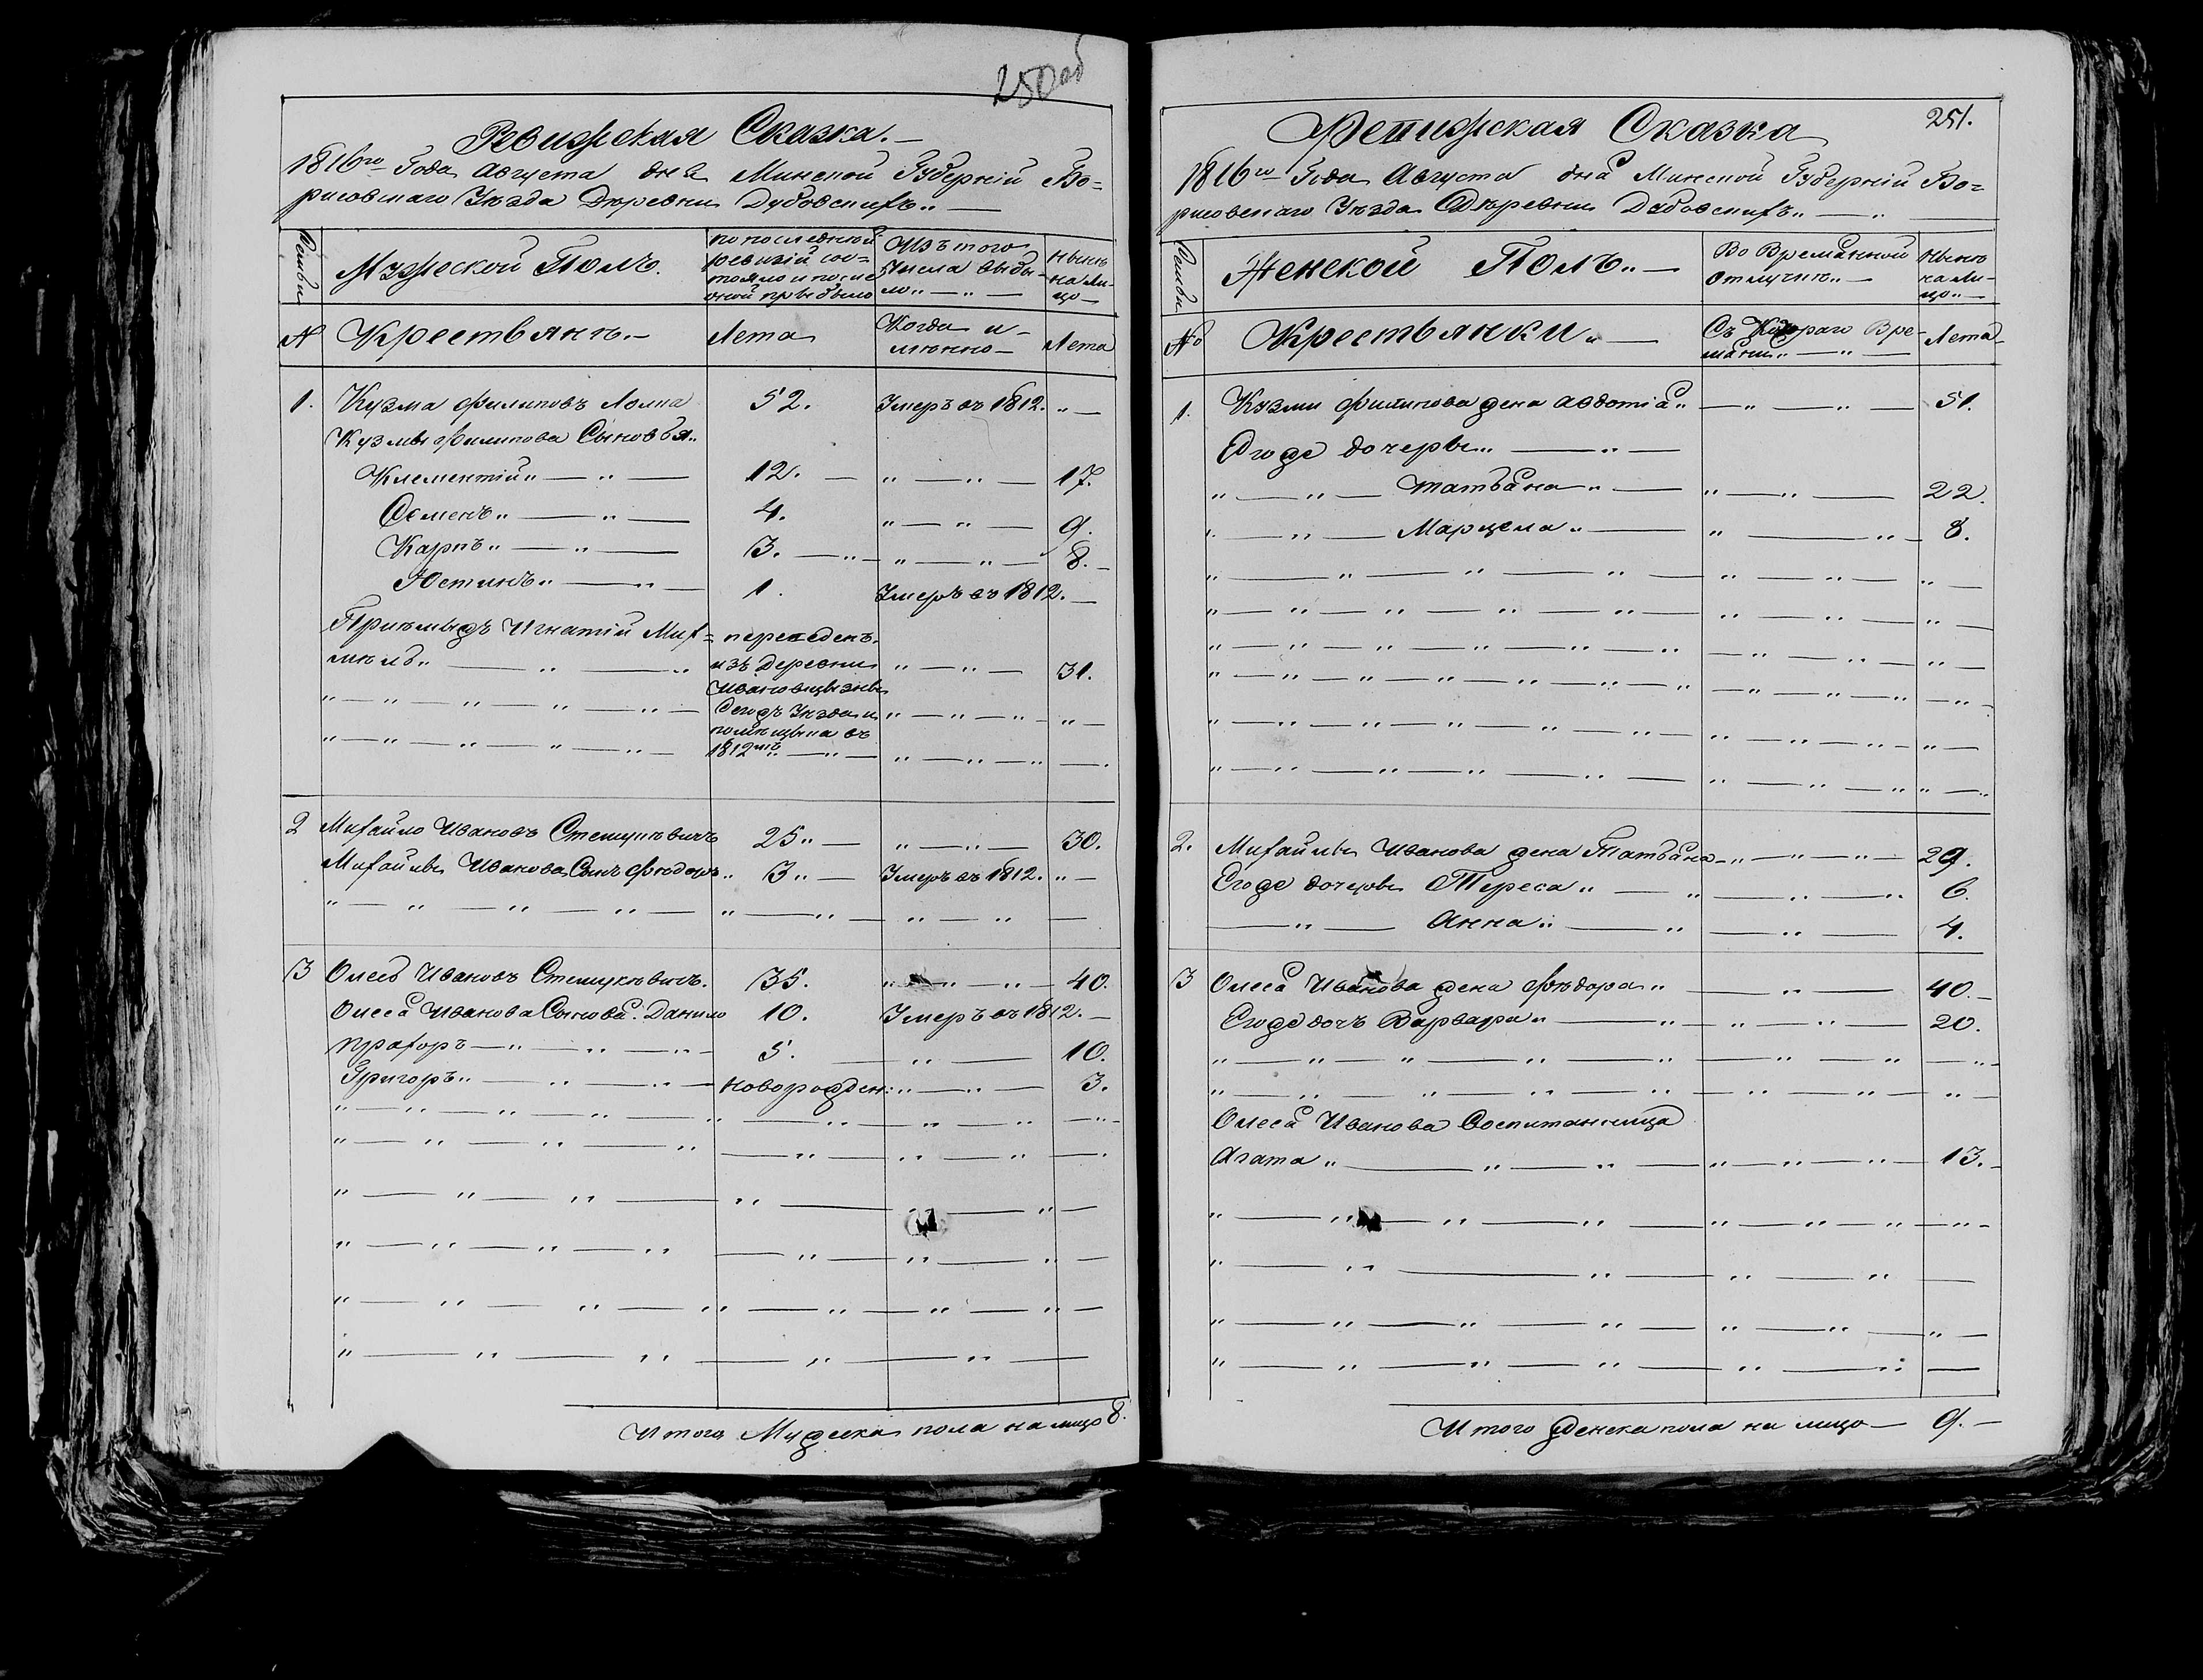 250об
Ревижская Сказка.
1816го Года Августа дня Минской Губерній Бо=
рисовскаго Уезда Деревни Дубовскихъ
Семьи
Мужеской Полъ.
по последней
ревизій сос=
тояло и после
оной прибыло
Изъ того
Числа выбы-
ло
Нынѣ
на Ли-
цо
№
Крестьянѣ.
Лета
Когда и-
мянно
Лета
1.
Кузма Филиповъ Лолна
52.
Умеръ въ 1812.
Кузмы Филипова Сыновья
Клементій
12.
17.
Семенъ
4.
9.
Карпъ
3.
8.
Юстинъ
1.
Умеръ въ 1812.
Приемыжъ Игнатій Мих=
переведенъ
изъ деревни
31.
Сегожъ Уезда и
помещика въ
1812мъ
2
Михайло Ивановъ Стешукевичъ
25
30.
Михайлы Иванова Сынъ Фiодоръ
3
Умеръ въ 1812.
3
Олесь Ивановъ Стешукевичъ.
35.
40.
Олеся Иванова Сынова. Данило
10.
Умеръ въ 1812.
Прахоръ
5.
10.
Григоръ
новорожден:
3.
Итого Мужеска пола на лицо 8.
251.
Ревижская Сказка
1816го Года Августа дня Минской Губерній Бо=
рисовскаго Уезда Деревни Дубовскихъ
Семьи
Женской Полъ
Во Времянной
отлучкѣ
Нынѣ
на Ли-
цо
№
Крестьянки
Съ Котораго Вре-
мяни
Лета
1.
Кузмы Филипова жена Авдотія
51.
Егоже дочеры
Татьяна
22.
Марцела
8.
2.
Михайлы Иванова жена Татьяна
29.
Егоже дочеры Тереса
6.
Анна
4.
3
Олеся Иванова жена Фѣдора
40.
Егоже дочъ Варвара
20.
Олеся Иванова Воспитанница
Агата
13.
Итого женска пола на лицо 9.